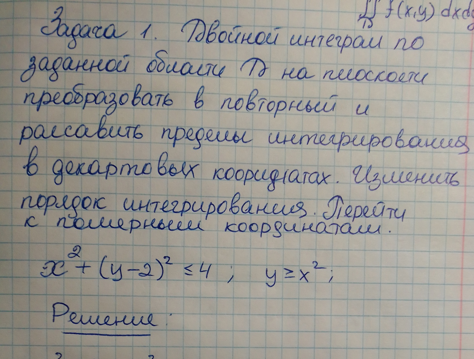 ∬ f(x,y) dxdy
D
Задача 1. Двойной интеграл по
заданной области D на плоскости
преобразовать в повторный и
рассавить пределы интегрирования
в декартовых кооридатах. Изменить
порядок интегрирования. Перейти
к полярным координатам.
x² + (y-2)² ≤ 4 ; y ≥ x² ;
Решение: